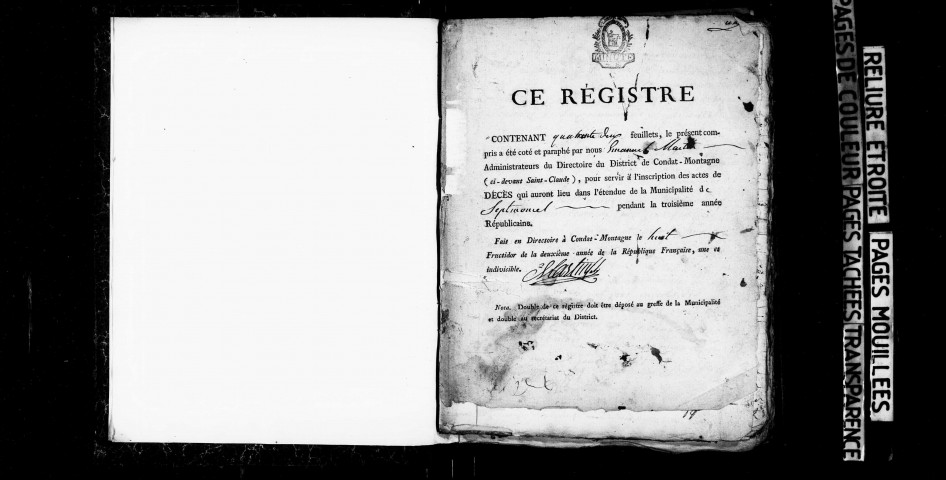 CE REGISTRE
CONTENANT quarante deux feuillets, le présent com-
pris a été coté et paraphé par nous Emanuel
Administrateurs du Directoire du District de Condat-Montagne
(ci-devant Saint-Claude), pour servir à l'inscription des actes de
DÉCÈS qui auront lieu dans l'étendue de la Municipalité de
Septmoncel pendant la troisième année
Républicaine.
Fait en Directoire à Condat-Montagne le huit
Fructidor de la deuxième année de la République Française, une et
indivisible.
Nota. Double de ce régistre doit être déposé au greffe de la Municipalité
et double au secrétariat du District.
19
PAGES DE COULEUR PAGES TACHEES TRANSPARENCE
RELIURE ETROITE PAGES MOUILLEES